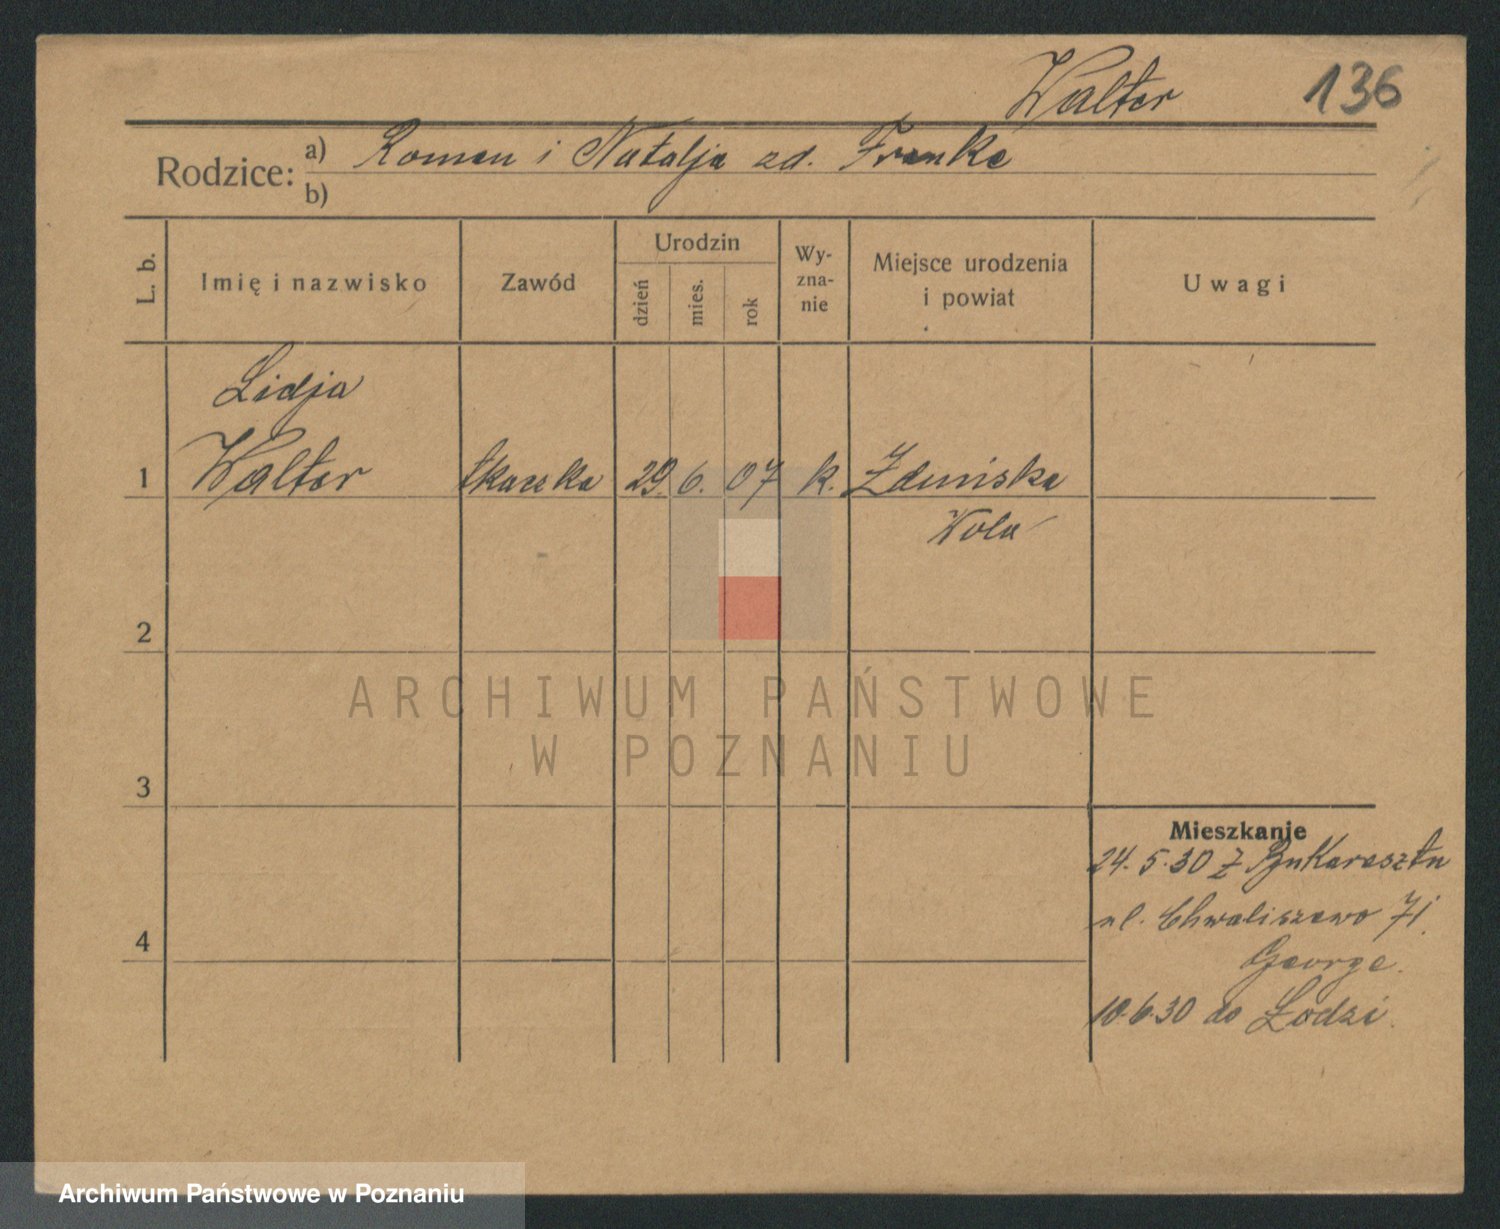 Walter 136
Rodzice: a) Roman i Natalja zd. Franke
b)
L. b. Imię i nazwisko Zawód Urodzin dzień mies. rok Wyznanie Miejsce urodzenia i powiat Uwagi
Lidja
1 Walter tkaczka 29. 6. 07 k. Zduńska
Wola
2
ARCHIWUM PAŃSTWOWE
W POZNANIU
3
Mieszkanie
24. 5. 30 z Bukaresztu
4 ul. Chwaliszewo 71
George.
10. 6. 30 do Łodzi.
Archiwum Państwowe w Poznaniu